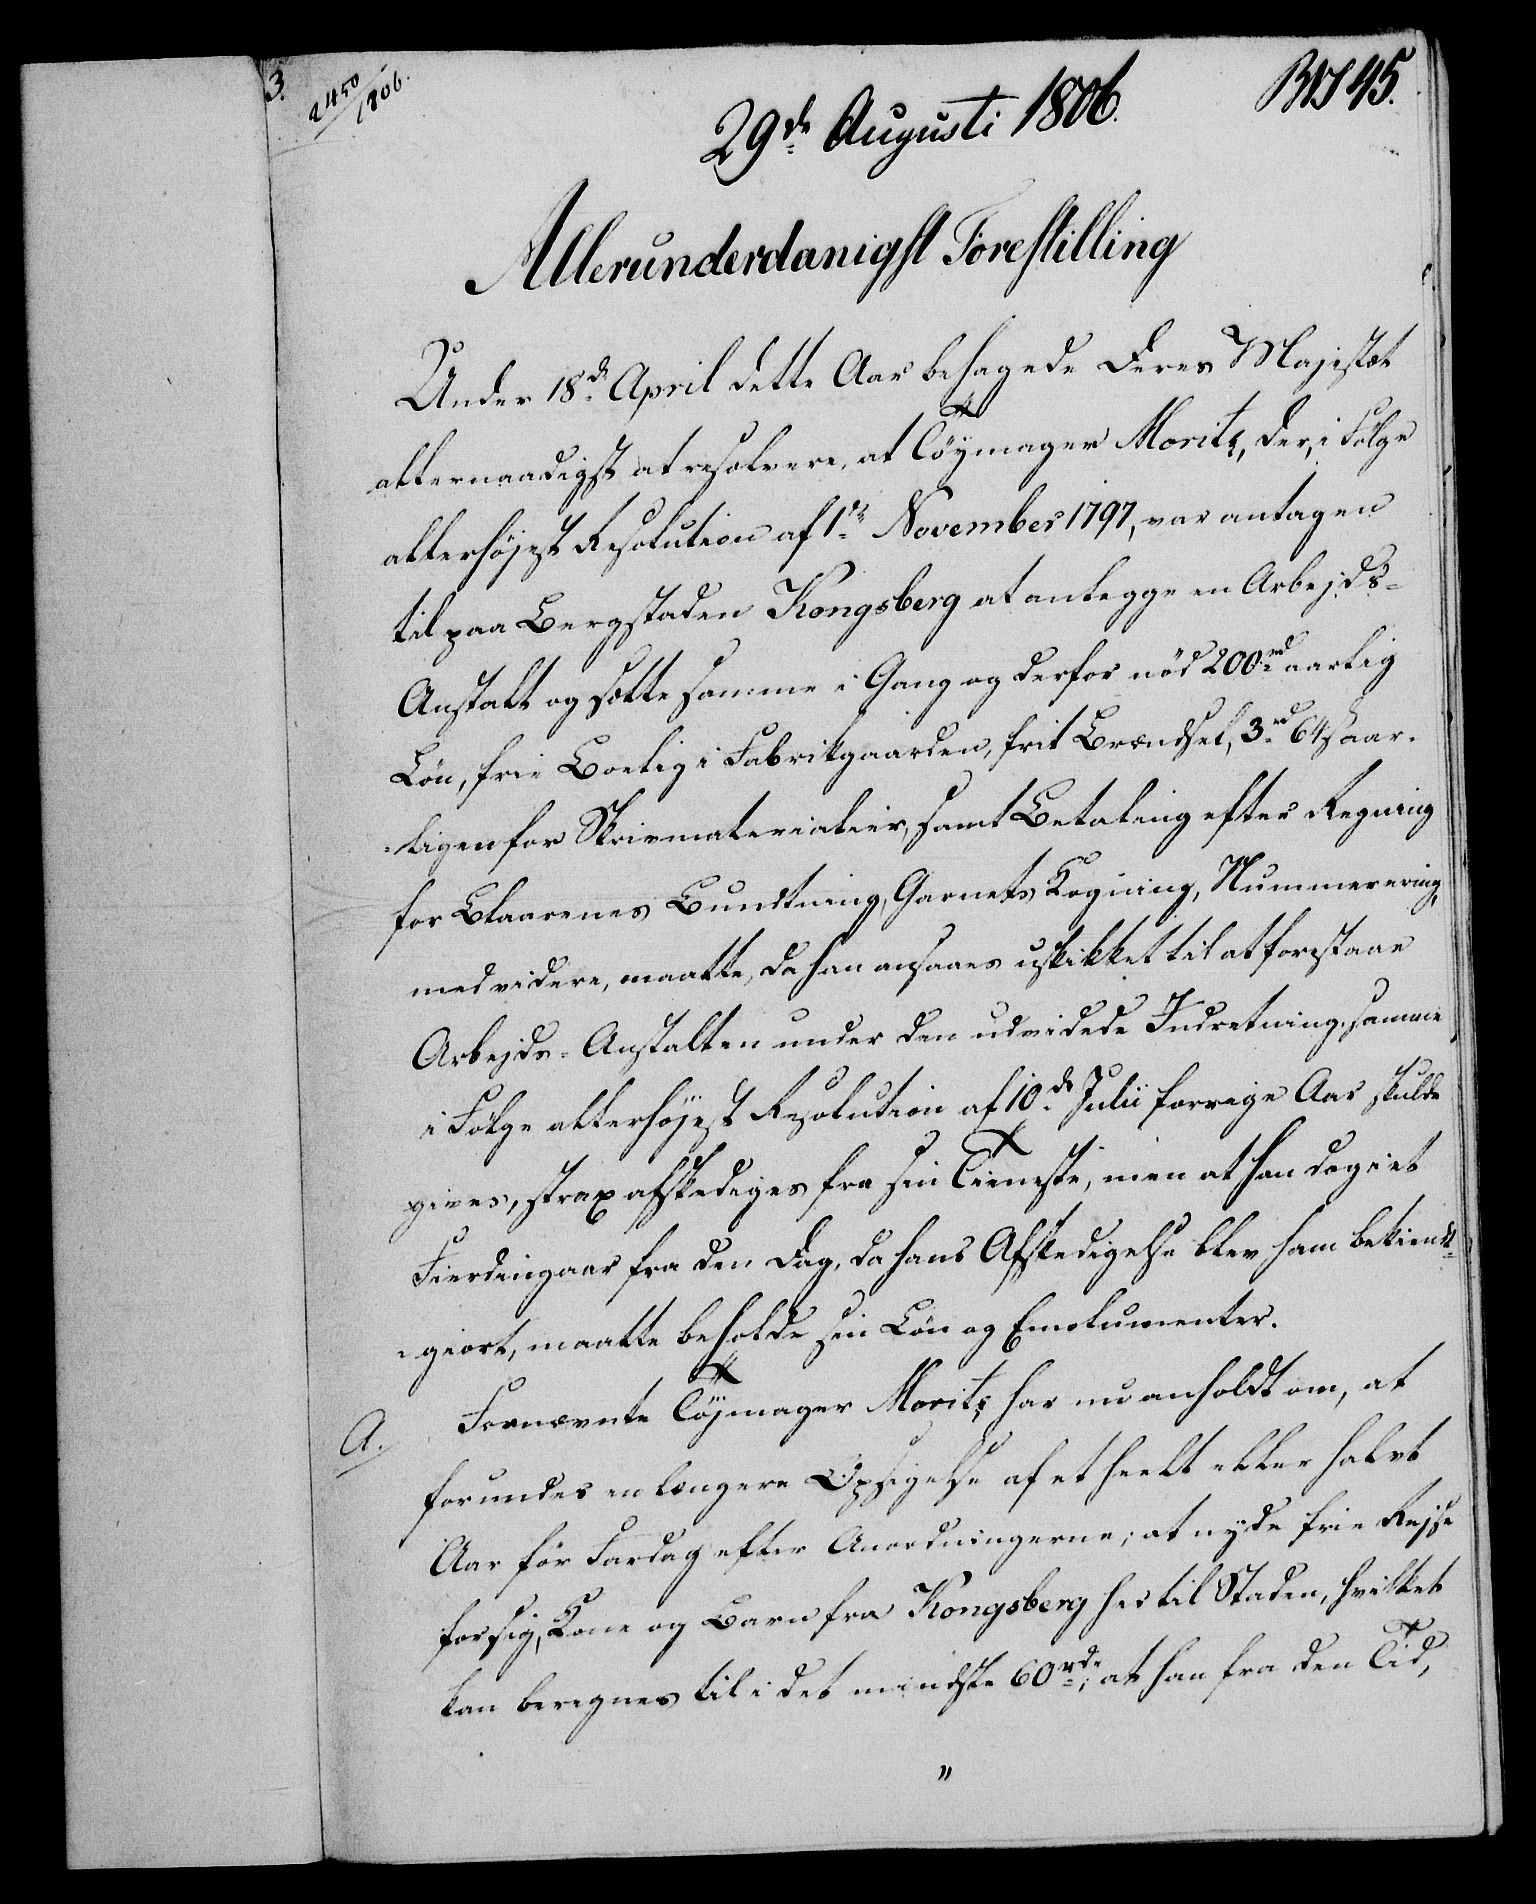 3.
2450/1806.
29de Augusti 1806.
No 45.
Allerunderdanigst Forestilling
Under 18de April dette Aar behagede Deres Majestæt
allernaadigst at resolvere, at Töymager Moritz, der, i Følge
allerhöjest Resolution af 1ste November 1797, var antagen
til paa Bergstaden Kongsberg at anlegge en Arbejds-
Anstalt og sætte samme i Gang og derfor nöd 200 rd aarlig
Lön, frie Boelig i Fabrikgaarden, frit Brændsel, 3 rd 64 s aar-
ligen for Skrivematerialier, samt Betaling efter Regning
for Blaarenes Bundtning, Garnets Kogning, Nummerering,
med videre, maatte, da han ansaaes uskikket til at forestaae
Arbejds-Anstalten under den udvidede Indretning, samme
i Følge allerhöjest Resolution af 10de Julii forrige Aar skulde
gives, strax afskediges fra sin Tieneste, men at han dog i et
Fierdingaar fra den Dag, da hans Afskedigelse blev ham bekiendt-
giort, maatte beholde sin Lön og Emolumenter.
A. Fornævnte Töjmager Moritz har nu anholdt om, at
forundes en længere Opsigelse af et heelt eller halvt
Aar för Fardag efter Anordningerne; at nyde frie Rejse
for sig, Kone og Barn fra Kongsberg her til Staden, hvilket
kan beregnes til i det mindste 60 rd.; at han fra den Tid,
"